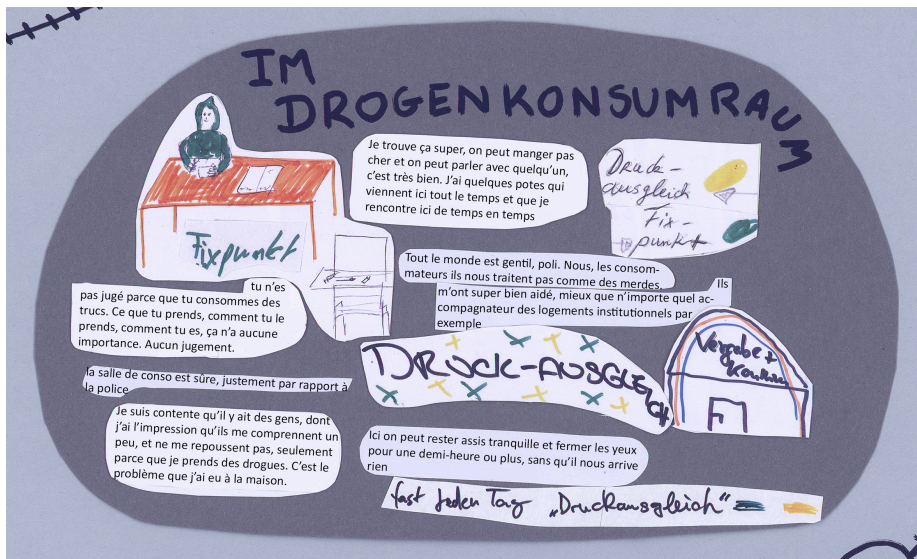 IM
DROGENKONSUMRAUM
Je trouve ça super, on peut manger pas
cher et on peut parler avec quelqu'un,
c'est très bien. J'ai quelques potes qui
viennent ici tout le temps et que je
rencontre ici de temps en temps
Druck-
ausgleich
Fix-
punkt
Fixpunkt
Tout le monde est gentil, poli. Nous, les consom-
mateurs ils nous traitent pas comme des merdes.
Ils
m'ont super bien aidé, mieux que n'importe quel ac-
compagnateur des logements institutionnels par
exemple
tu n'es
pas jugé parce que tu consommes des
trucs. Ce que tu prends, comment tu le
prends, comment tu es, ça n'a aucune
importance. Aucun jugement.
DRUCK-AUSGLEICH
Vergabe +
la salle de conso est sûre, justement par rapport à
la police
Je suis contente qu'il y ait des gens, dont
j'ai l'impression qu'ils me comprennent un
peu, et ne me repoussent pas, seulement
parce que je prends des drogues. C'est le
problème que j'ai eu à la maison.
Ici on peut rester assis tranquille et fermer les yeux
pour une demi-heure ou plus, sans qu'il nous arrive
rien
fast jeden Tag „Druckausgleich“